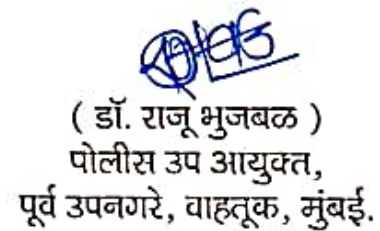 ( डॉ. राजू भुजबळ )
पोलीस उप आयुक्त,
पूर्व उपनगरे, वाहतूक, मुंबई.